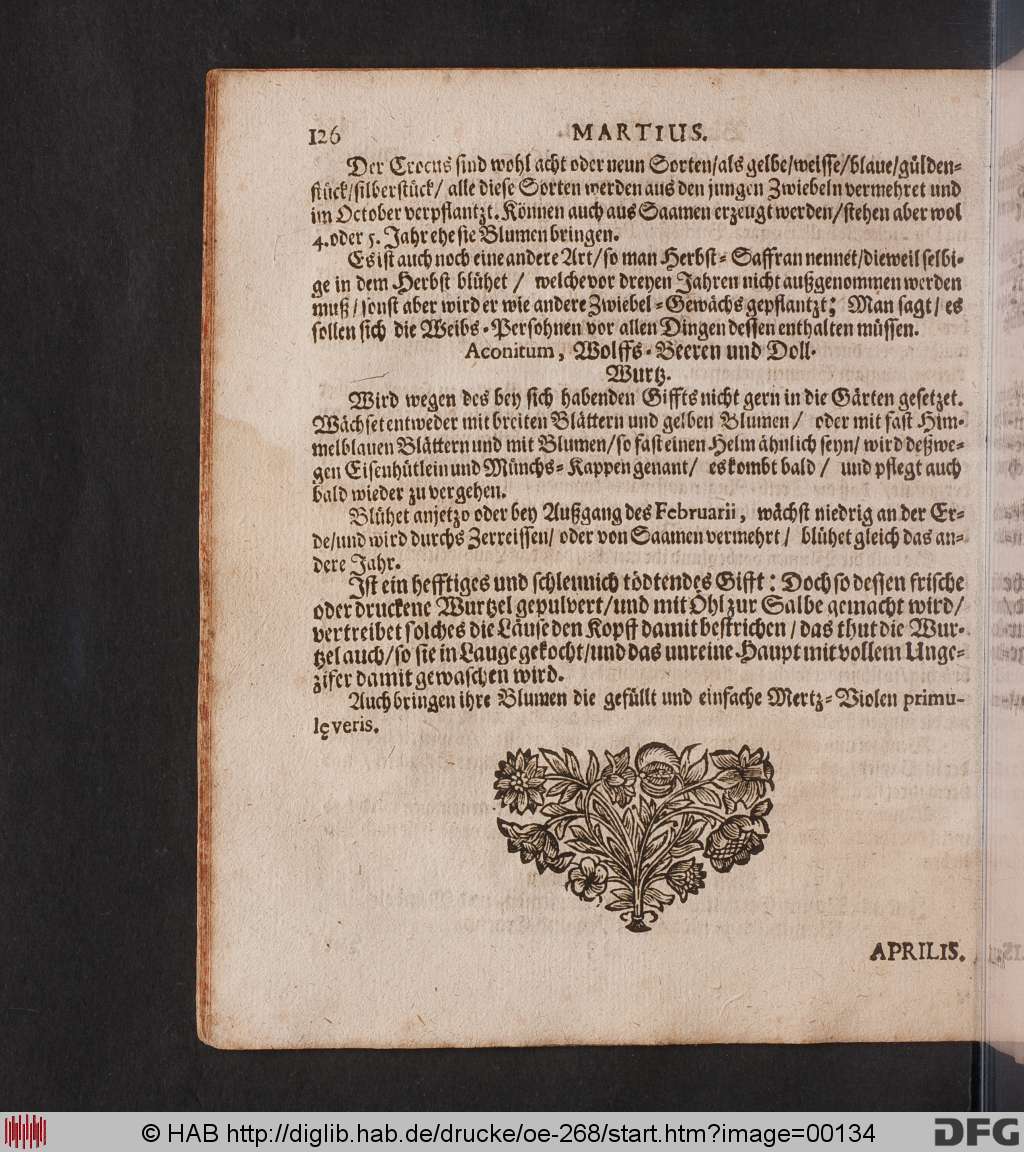 126
MARTIUS.
Der Crocus sind wohl acht oder neun Sorten/als gelbe/weisse/blaue/gülden-
stück/silberstück/ alle diese Sorten werden aus den jungen Zwiebeln vermehret und
im October verpflantzt. Können auch aus Saamen erzeugt werden/stehen aber wol
4. oder 5. Jahr ehe sie Blumen bringen.
Es ist auch noch eine andere Art/so man Herbst-Saffran nennet/dieweil selbi-
ge in dem Herbst blühet / welche vor dreyen Jahren nicht außgenommen werden
muß/sonst aber wird er wie andere Zwiebel-Gewächs gepflantzt; Man sagt/ es
sollen sich die Weibs-Persohnen vor allen Dingen dessen enthalten müssen.
Aconitum, Wolffs-Beeren und Doll-
Wurtz.
Wird wegen des bey sich habenden Giffts nicht gern in die Gärten gesetzet.
Wächset entweder mit breiten Blättern und gelben Blumen/ oder mit fast Him-
melblauen Blättern und mit Blumen/so fast einen Helm ähnlich seyn/ wird deßwe-
gen Eisenhütlein und Münchs-Kappen genant/ es kombt bald / und pflegt auch
bald wieder zu vergehen.
Blühet anjetzo oder bey Außgang des Februarii, wächst niedrig an der Er-
de/und wird durchs Zerreissen/ oder von Saamen vermehrt / blühet gleich das an-
dere Jahr.
Ist ein hefftiges und schleunich tödtendes Gifft: Doch so dessen frische
oder druckene Wurtzel gepulvert/und mit Öhl zur Salbe gemacht wird/
vertreibet solches die Läuse den Kopff damit bestrichen / das thut die Wur-
tzel auch/so sie in Lauge gekocht/und das unreine Haupt mit vollem Unge-
zifer damit gewaschen wird.
Auch bringen ihre Blumen die gefüllt und einfache Mertz-Violen primu-
lę veris.
APRILIS.
© HAB http://diglib.hab.de/drucke/oe-268/start.htm?image=00134
DFG